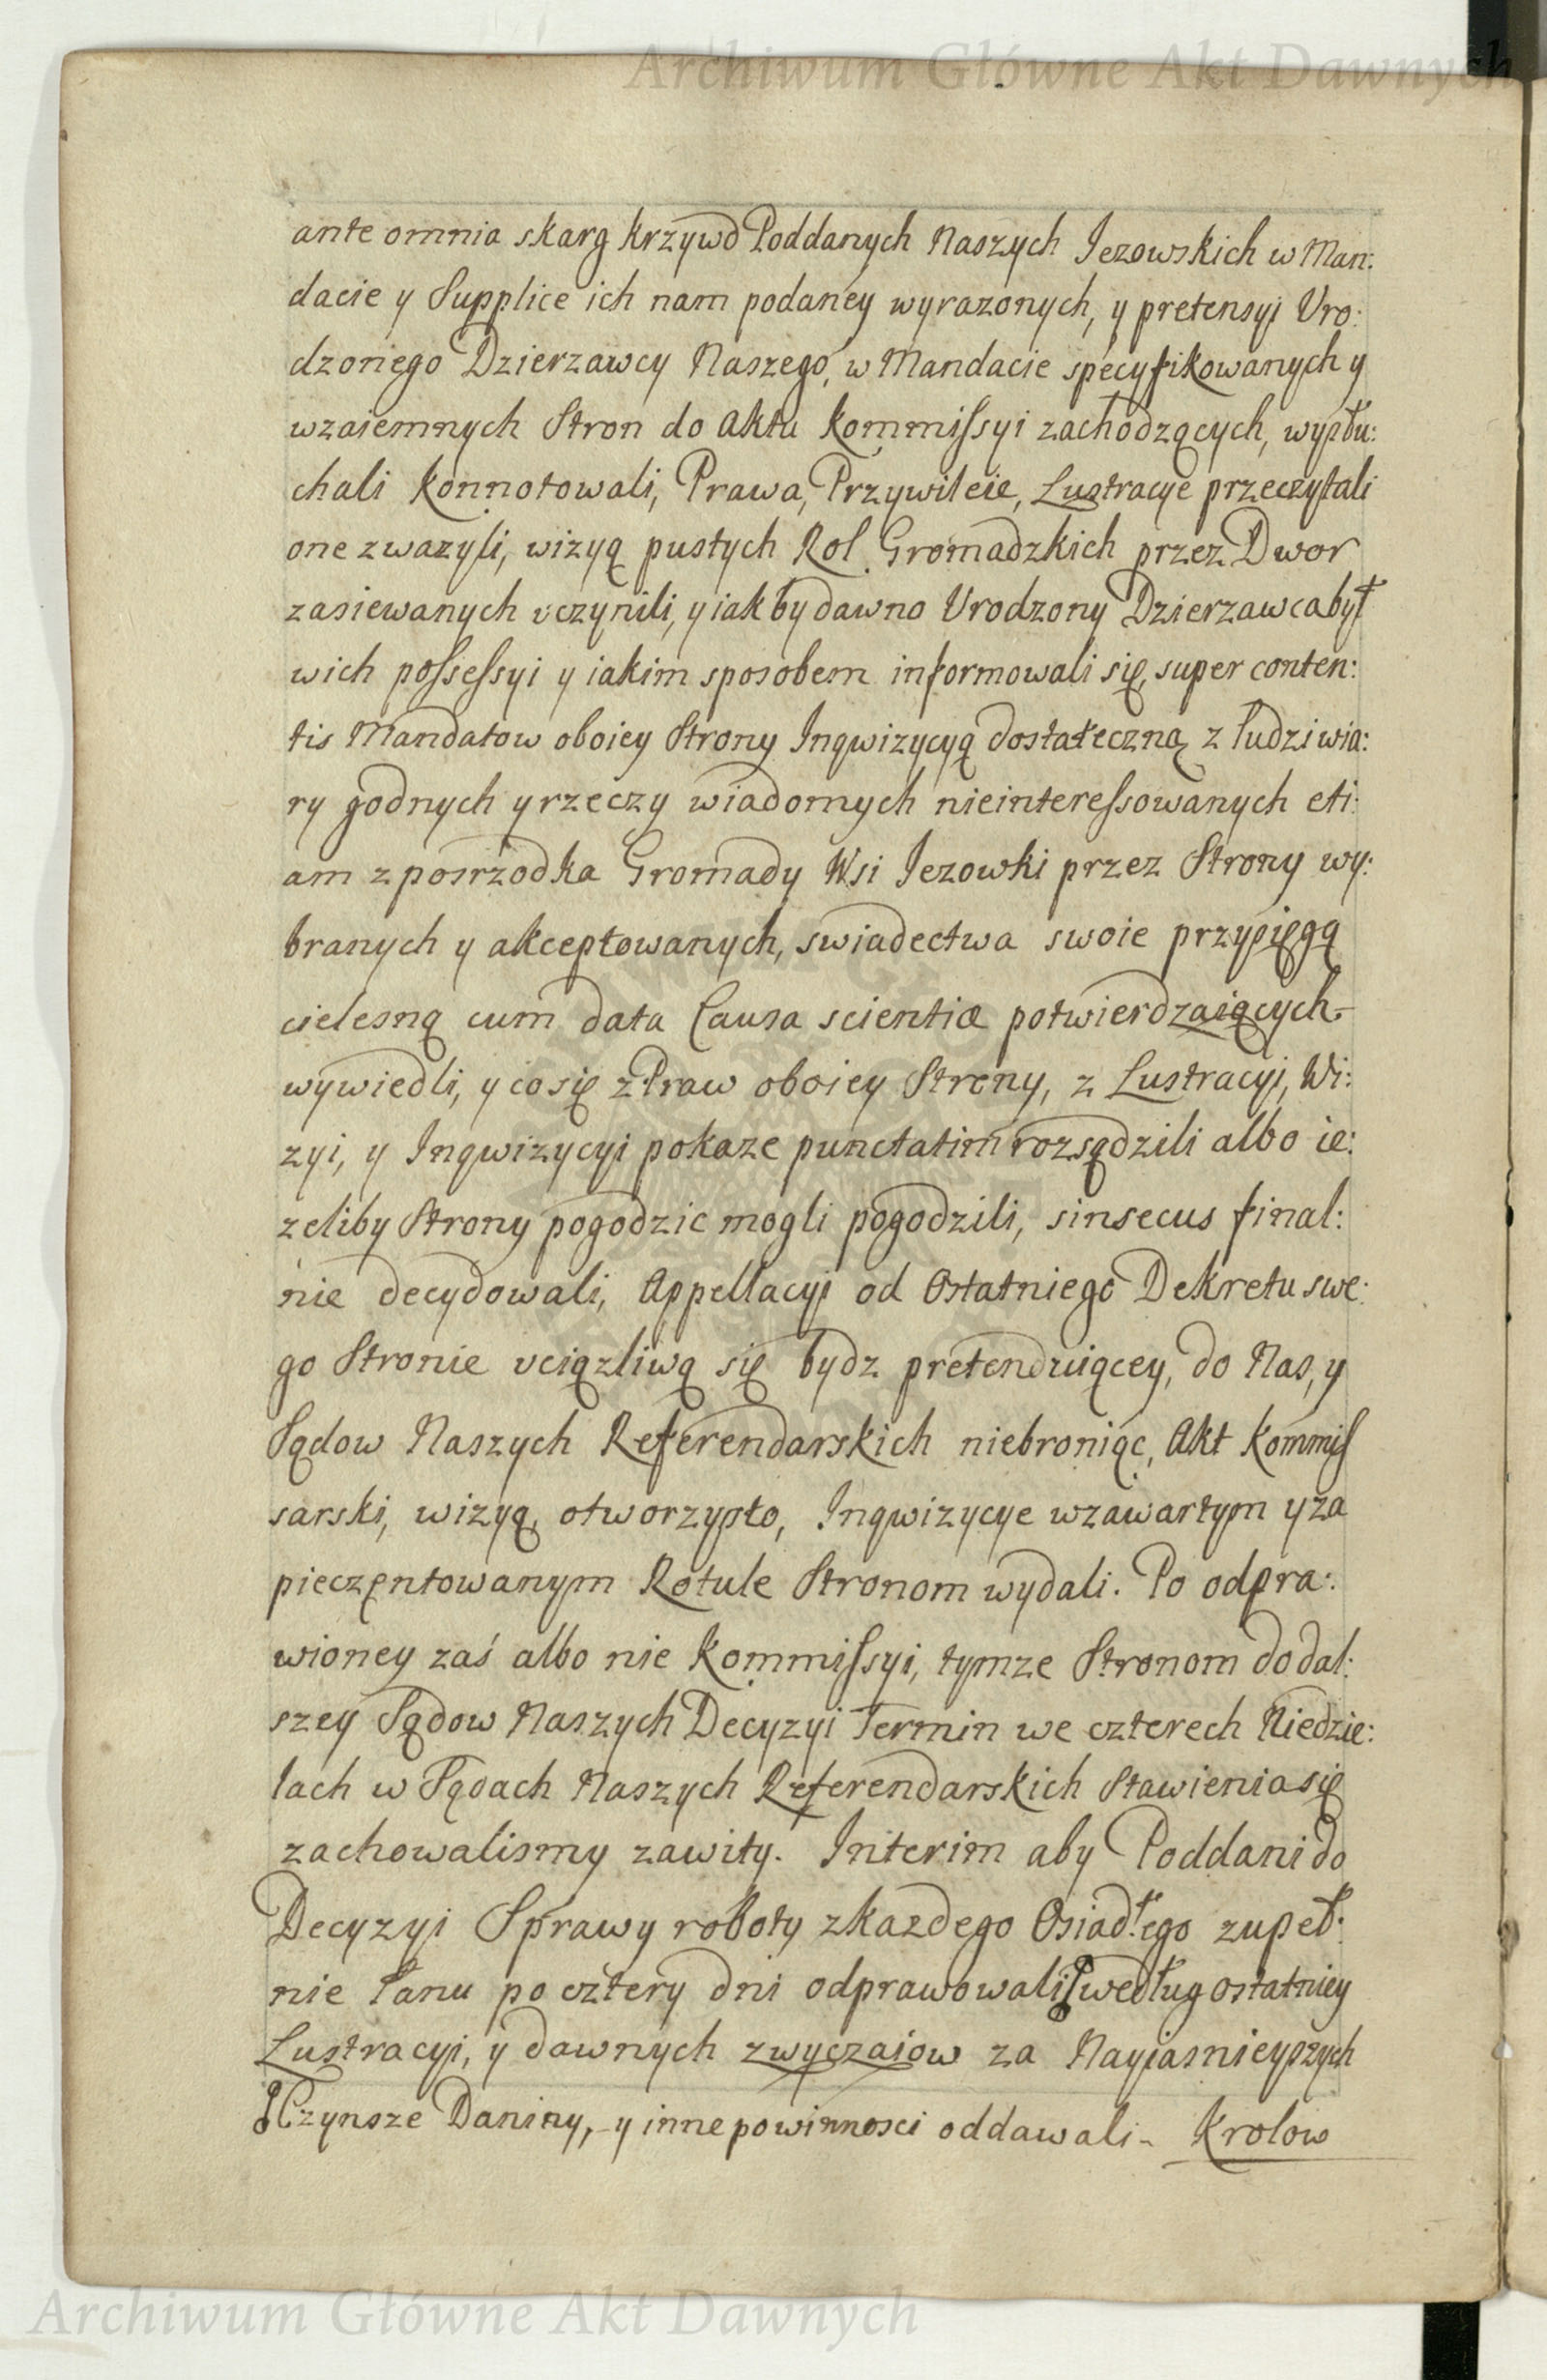 Archiwum Główne Akt Dawnych
ante omnia skarg krzywd Poddanych Naszych Jezowskich w Man:
dacie y Supplice ich nam podaney wyrazonych, y pretensyi Vro:
dzonego Dzierzawcy Naszego, w Mandacie specyfikowanych y
wzaiemnych Stron do aktu kommiſsyi zachodzących, wysłu:
chali konnotowali, Prawa, Przywileie, Lustracye przeczytali
one zwazyli, wizyą pustych Rol Gromadzkich przez Dwor
zasiewanych vczynili, y iak by dawno Vrodzony Dzierzawca był
wich poſseſsyi y iakim sposobem informowali się, super conten:
tis Mandatow oboiey Strony Inqwizycyą dostateczną z ludzi wia:
ry godnych y rzeczy wiadomych nieintereſsowanych eti:
am z posrzodka Gromady Wsi Jezowki przez Strony wy:
branych y akceptowanych, swiadectwa swoie przysięgą
cielesną cum data Causa scientiæ potwierdzaiących
wywiedli, y co się z Praw oboiey Strony, z Lustracyi, Wi:
zyi, y Inqwizycyi pokaze punctatim rozsądzili albo ie:
zeliby Strony pogodzic mogli pogodzili, sinsecus final:
nie decydowali, Appellacyi od Ostatniego Dekretu swe:
go Stronie vciązliwą się bydz pretenduiącey, do Nas, y
Sądow Naszych Referendarskich niebroniąc, Akt kommiſ
sarski, wizyą, otworzysto, Inqwizycye wzawartym y za
pieczętowanym Rotule Stronom wydali. Po odpra:
wioney zaś albo nie kommiſsyi, tymze Stronom do dal:
szey Sądow Naszych Decyzyi Termin we czterech Niedzie:
lach w Sądach Naszych Referendarskich Stawienia się
zachowalismy zawity. Interim aby Poddani do
Decyzyi Sprawy roboty zkazdego Osiadłego zupeł:
nie Łanu po cztery dni odprawowali według ostatniey
Lustracyi, y dawnych zwyczaiow za Nayiasnieyszych
Czynsze Daniny, y inne powinnosci oddawali - Krolow
Archiwum Główne Akt Dawnych